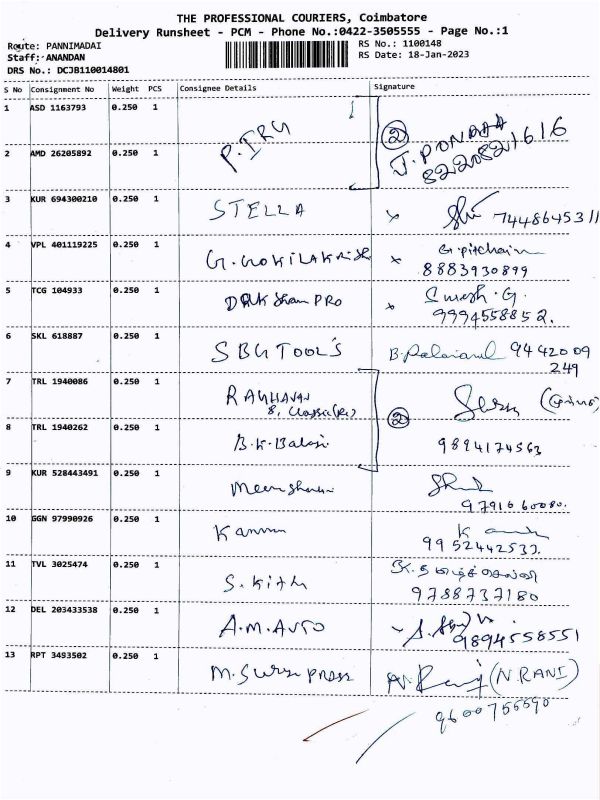 THE PROFESSIONAL COURIERS, Coimbatore
Delivery Runsheet - PCM - Phone No.:0422-3505555 - Page No.:1
Route: PANNIMADAI
RS No.: 1100148
Staff: ANANDAN
RS Date: 18-Jan-2023
DRS No.: DCJB110014801
S No Consignment No Weight PCS Consignee Details Signature
1 ASD 1163793 0.250 1 P. IRU
2 AMD 26205892 0.250 1 2 J. PONAAA 8220821616
3 KUR 694300210 0.250 1 STELLA x 7448645311
4 VPL 401119225 0.250 1 x G. pitchain
8883930899
5 TCG 104933 0.250 1 PRO x Suresh. G.
9994558852.
6 SKL 618887 0.250 1 SBG TOOL'S 9442009
249
7 TRL 1940086 0.250 1 RAGHAVAN
2
8 TRL 1940262 0.250 1 B.K. Balaji 9894174563
9 KUR 528443491 0.250 1
9791660080.
10 GGN 97990926 0.250 1 Kannan
9952442533.
11 TVL 3025474 0.250 1 S. Kith
9788737180
12 DEL 203433538 0.250 1 A.M. AUTO
9894558551
13 RPT 3493502 0.250 1 M. Surya press (N. RANI)
9600755590